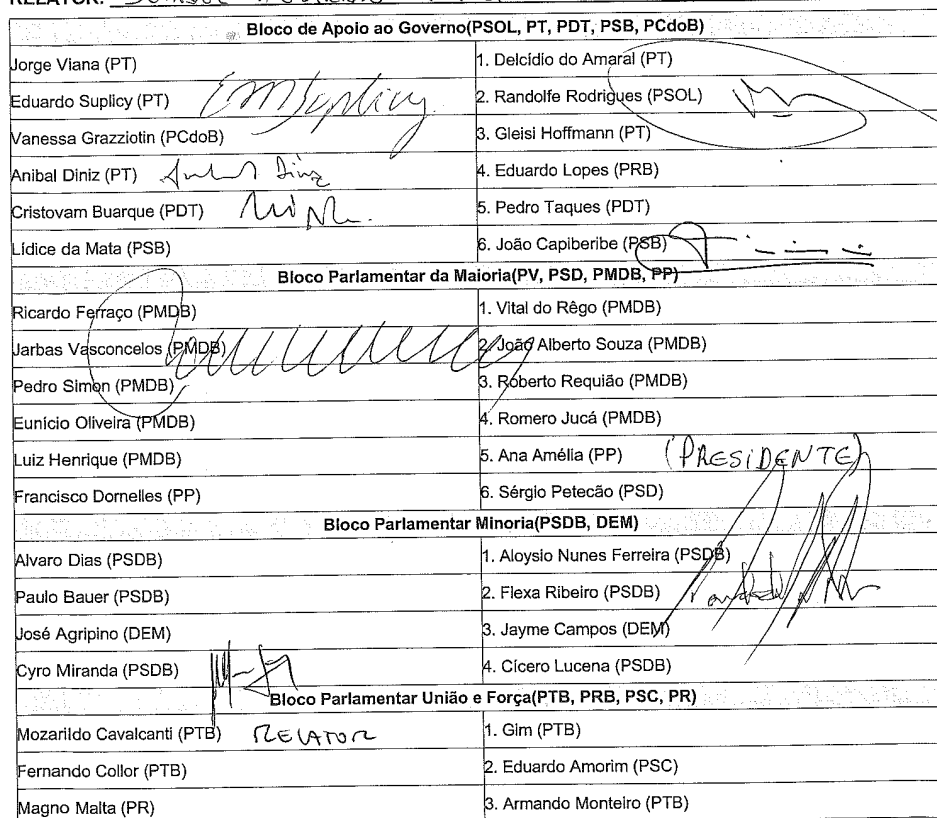 RELATOR:
Bloco de Apoio ao Governo(PSOL, PT, PDT, PSB, PCdoB)
Jorge Viana (PT) 1. Delcídio do Amaral (PT)
Eduardo Suplicy (PT) EMSuplicy 2. Randolfe Rodrigues (PSOL)
Vanessa Grazziotin (PCdoB) 3. Gleisi Hoffmann (PT)
Anibal Diniz (PT) Anibal Diniz 4. Eduardo Lopes (PRB)
Cristovam Buarque (PDT) 5. Pedro Taques (PDT)
Lídice da Mata (PSB) 6. João Capiberibe (PSB)
Bloco Parlamentar da Maioria(PV, PSD, PMDB, PP)
Ricardo Ferraço (PMDB) 1. Vital do Rêgo (PMDB)
Jarbas Vasconcelos (PMDB) 2. João Alberto Souza (PMDB)
Pedro Simon (PMDB) 3. Roberto Requião (PMDB)
Eunício Oliveira (PMDB) 4. Romero Jucá (PMDB)
Luiz Henrique (PMDB) 5. Ana Amélia (PP) (PRESIDENTE)
Francisco Dornelles (PP) 6. Sérgio Petecão (PSD)
Bloco Parlamentar Minoria(PSDB, DEM)
Alvaro Dias (PSDB) 1. Aloysio Nunes Ferreira (PSDB)
Paulo Bauer (PSDB) 2. Flexa Ribeiro (PSDB)
José Agripino (DEM) 3. Jayme Campos (DEM)
Cyro Miranda (PSDB) 4. Cícero Lucena (PSDB)
Bloco Parlamentar União e Força(PTB, PRB, PSC, PR)
Mozarildo Cavalcanti (PTB) RELATOR 1. Gim (PTB)
Fernando Collor (PTB) 2. Eduardo Amorim (PSC)
Magno Malta (PR) 3. Armando Monteiro (PTB)